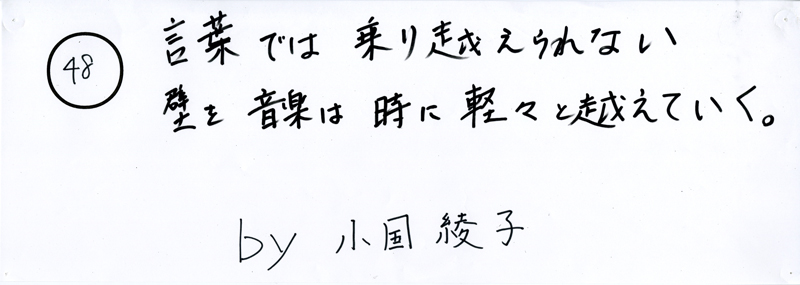 48
言葉では 乗り越えられない
壁を 音楽は 時に 軽々と越えていく。
by 小国 綾子